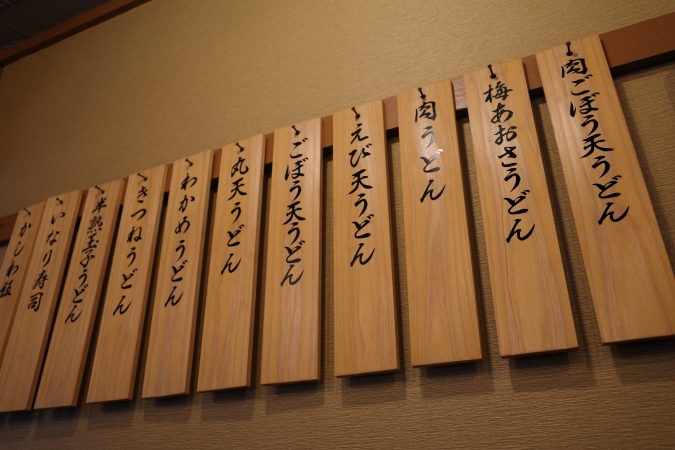 肉ごぼう天うどん
梅あおさうどん
肉うどん
えび天うどん
ごぼう天うどん
丸天うどん
わかめうどん
きつねうどん
半熟玉子うどん
いなり寿司
かしわ飯